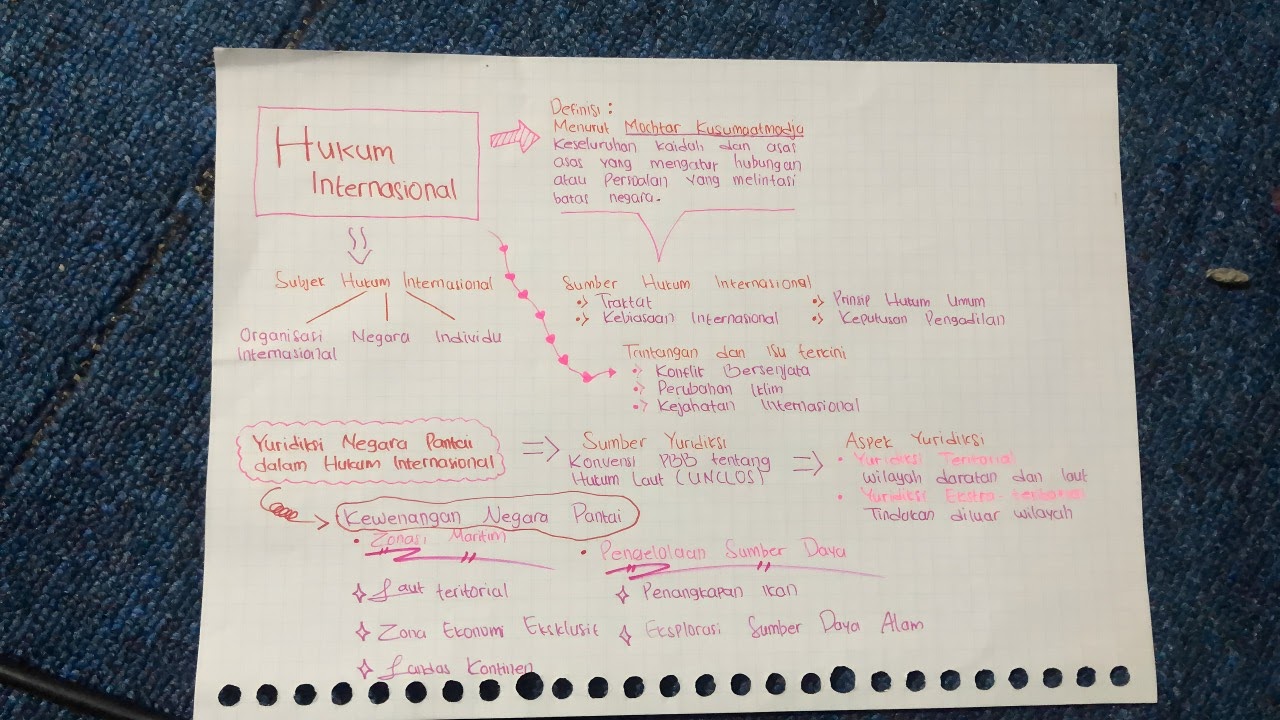 Hukum
Internasional
Definisi :
Menurut Mochtar Kusumaatmadja
Keseluruhan kaidah dan asas
asas yang mengatur hubungan
atau Persoalan yang melintasi
batas negara.
Subjek Hukum Internasional
Organisasi Internasional
Negara
Individu
Sumber Hukum Internasional
Traktat
Kebiasaan Internasional
Prinsip Hukum Umum
Keputusan Pengadilan
Trintangan dan Isu terkini
Konflik Bersenjata
Perubahan Iklim
Kejahatan Internasional
Yuridiksi Negara Pantai
dalam Hukum Internasional
Sumber Yuridiksi
Konvensi PBB tentang
Hukum Laut (UNCLOS)
Aspek Yuridiksi
• Yuridiksi Teritorial
wilayah daratan dan laut
• Yuridiksi Ekstra-teritorial
Tindakan diluar wilayah
Kewenangan Negara Pantai
• Zonasi Maritim
Laut teritorial
Zona Ekonomi Eksklusif
Landas Kontinen
• Pengelolaan Sumber Daya
Penangkapan Ikan
Eksplorasi Sumber Daya Alam